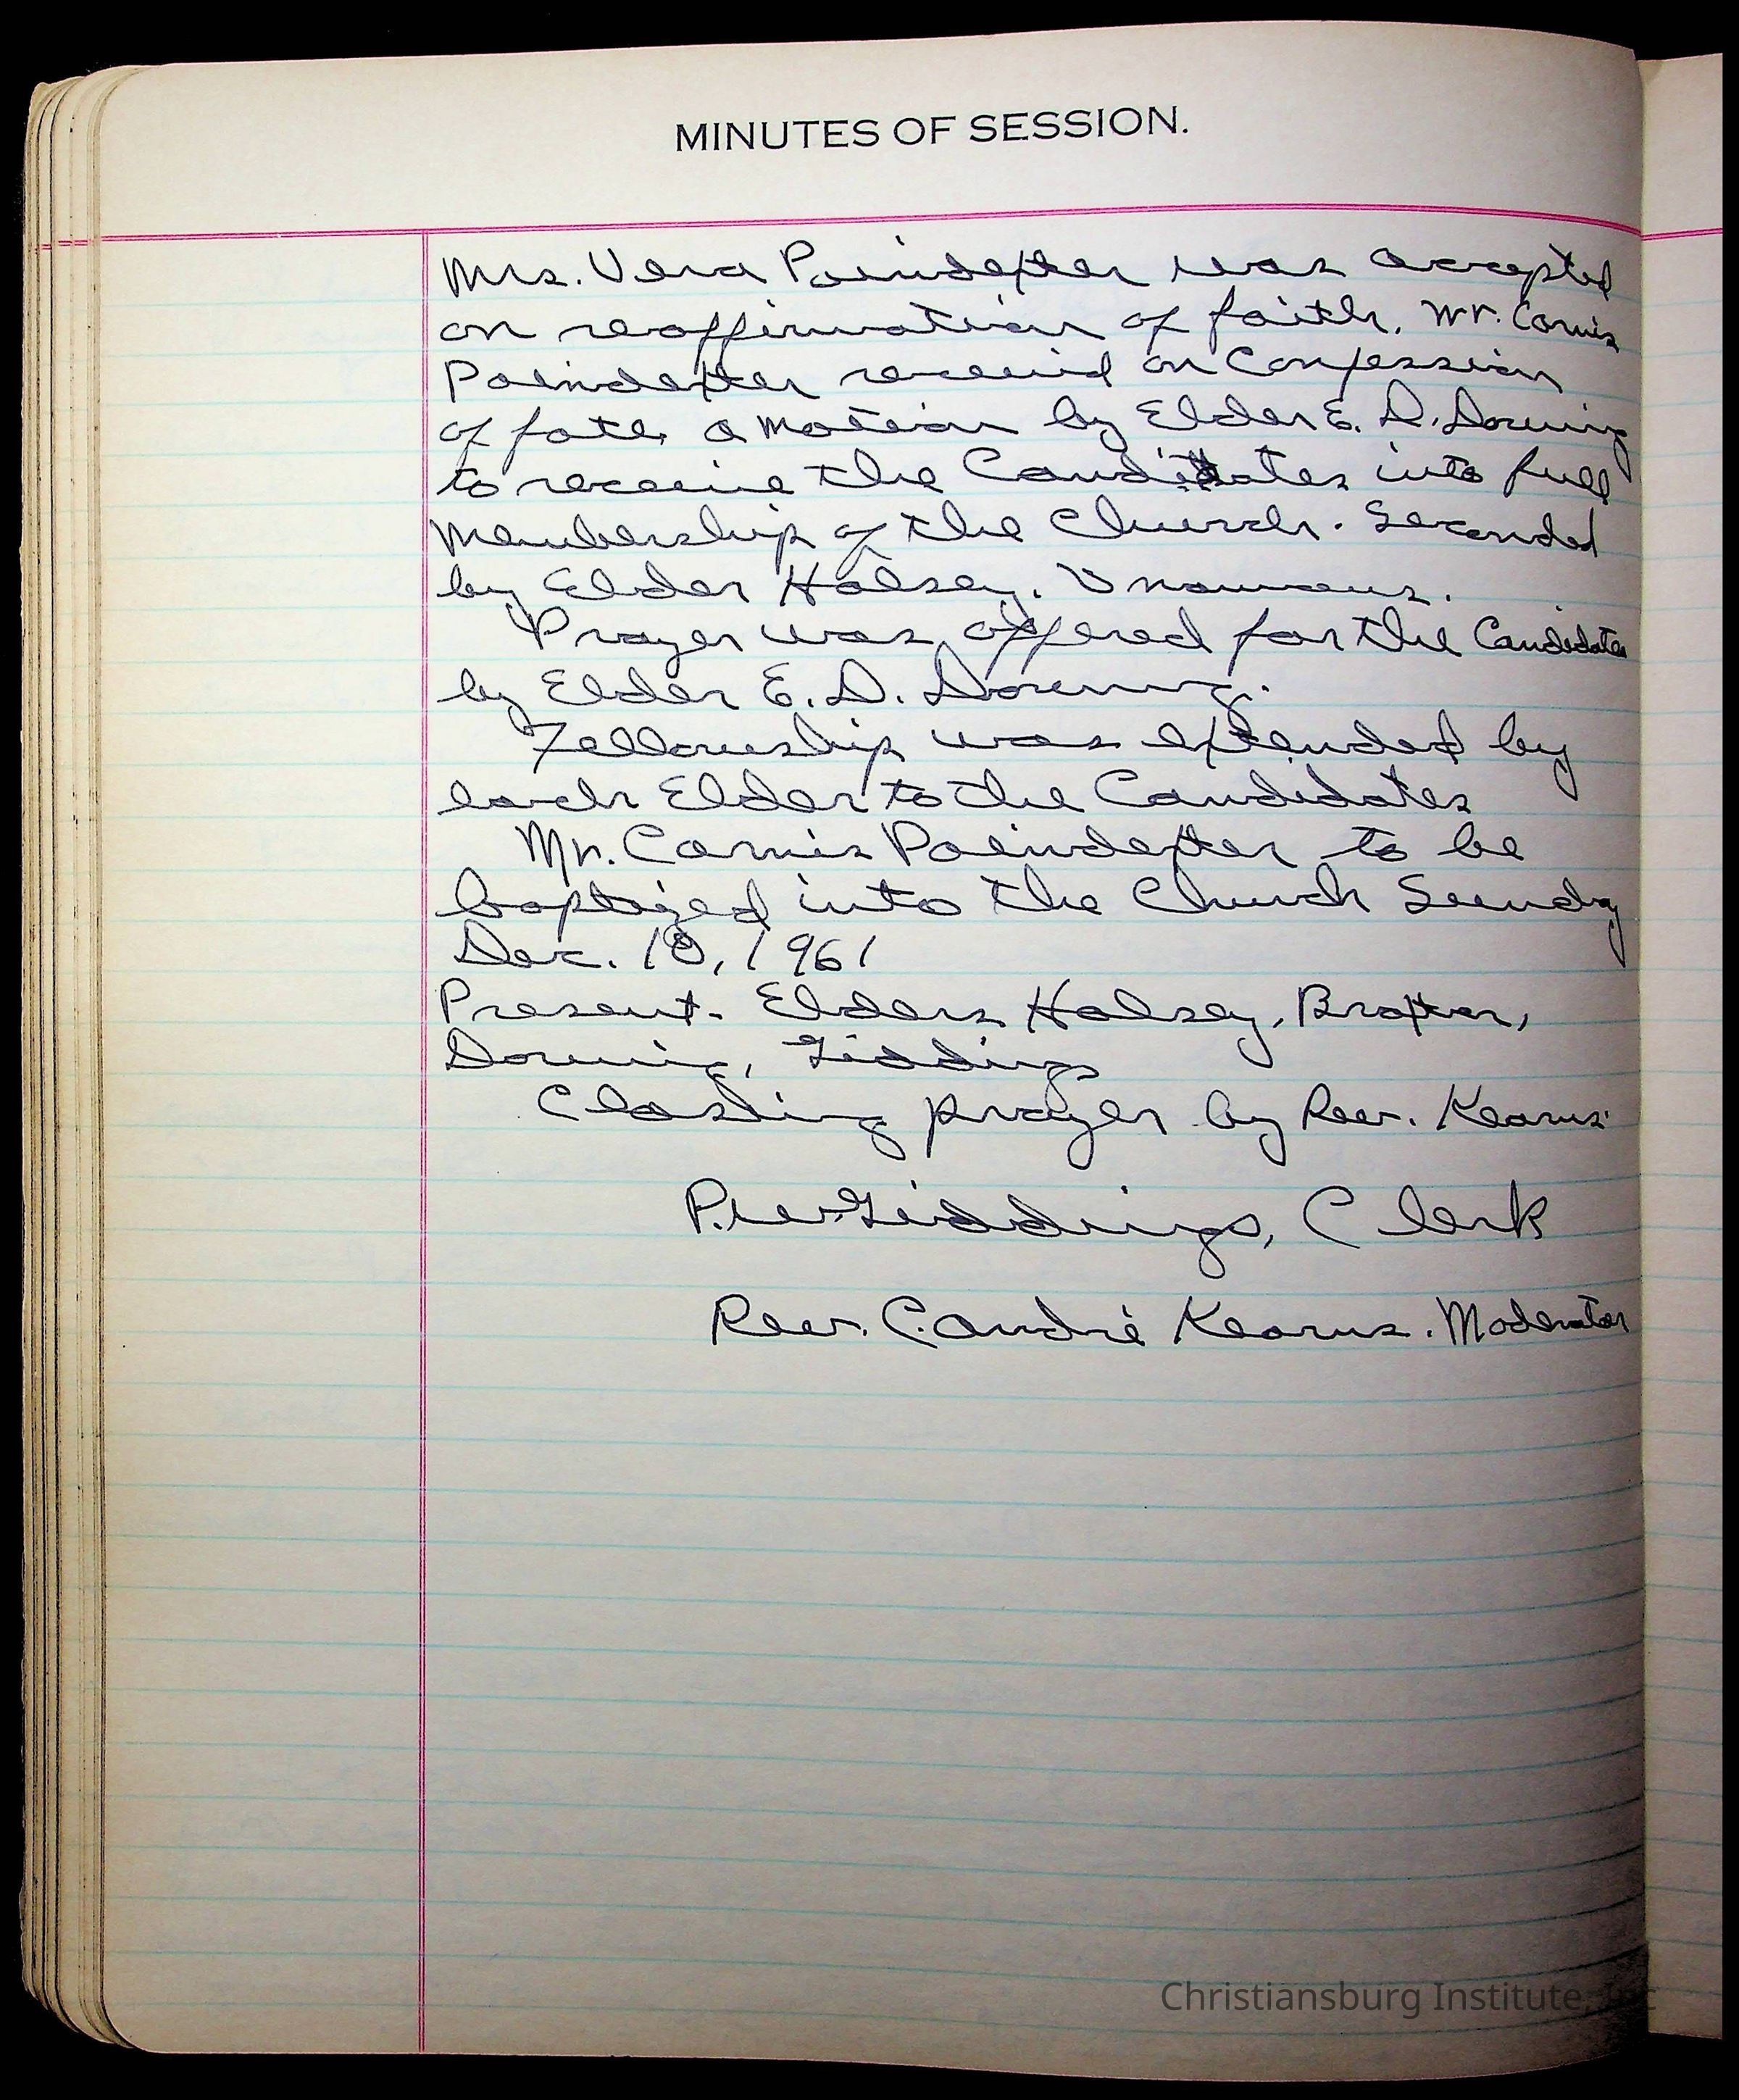 MINUTES OF SESSION.
Mrs. Vera Poindexter was accepted
on reaffirmation of faith. Mr. Cornis
Poindexter received on Confession
of fate a motion by Elder E. D. Downing
to receive the Candidates into full
Membership of the Church. Seconded
by Elder Halsey. Unamous.
Prayer was offered for the Candidates
by Elder E. D. Downing.
Fellowship was extended by
each Elder to the Candidates
Mr. Cornis Poindexter to be
baptized into the Church Sunday
Dec. 10, 1961
Present. Elders Halsey, Braxton,
Downing, Giddings
Closing prayer by Rev. Kearns.
P.W. Giddings, Clerk
Rev. C. Andre Kearns. Moderator
Christiansburg Institute, Inc